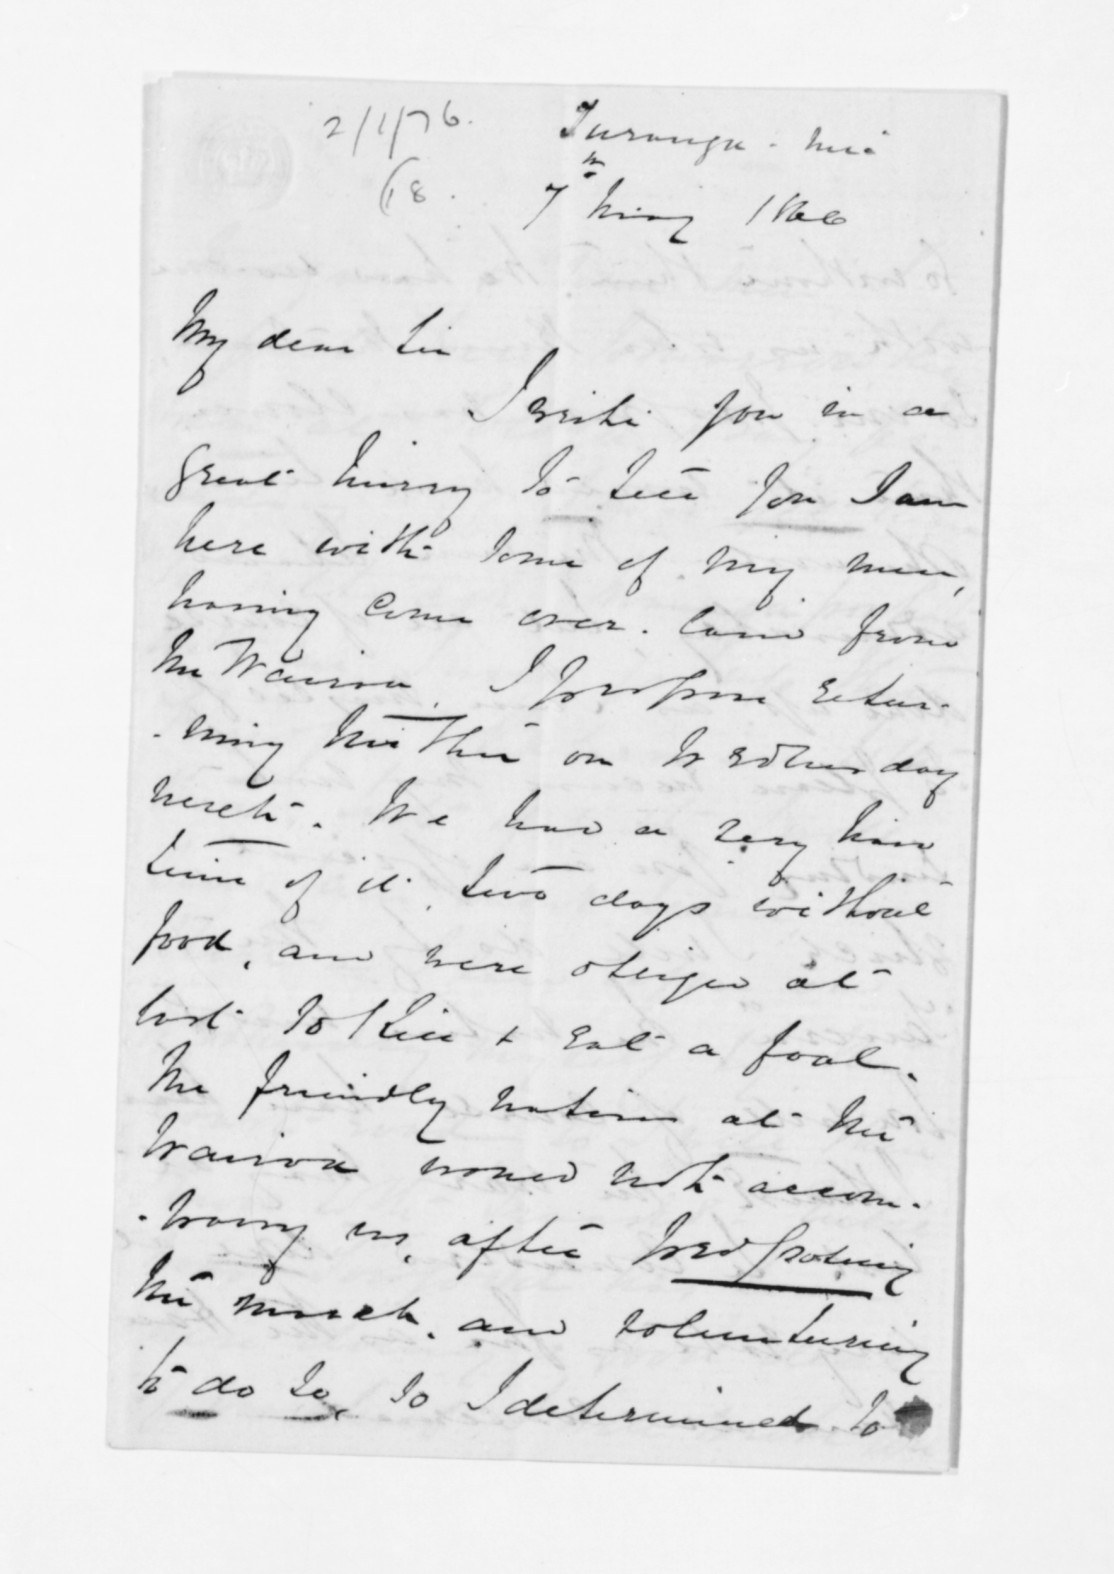 2/1/76.
(18.
Turanga - nui
7th May 1866
My dear Sir
I write you in a
great hurry to tell you I am
here with some of my men,
having come over land from
the Wairoa. I propose retur-
-ning thither on Wednesday
next. We had a very hard
time of it, two days without
food, and were obliged at
last to kill & eat a foal.
The friendly natives at the
Wairoa would not accom-
-pany us, after
the march, and volunteering
to do so, so I determined to